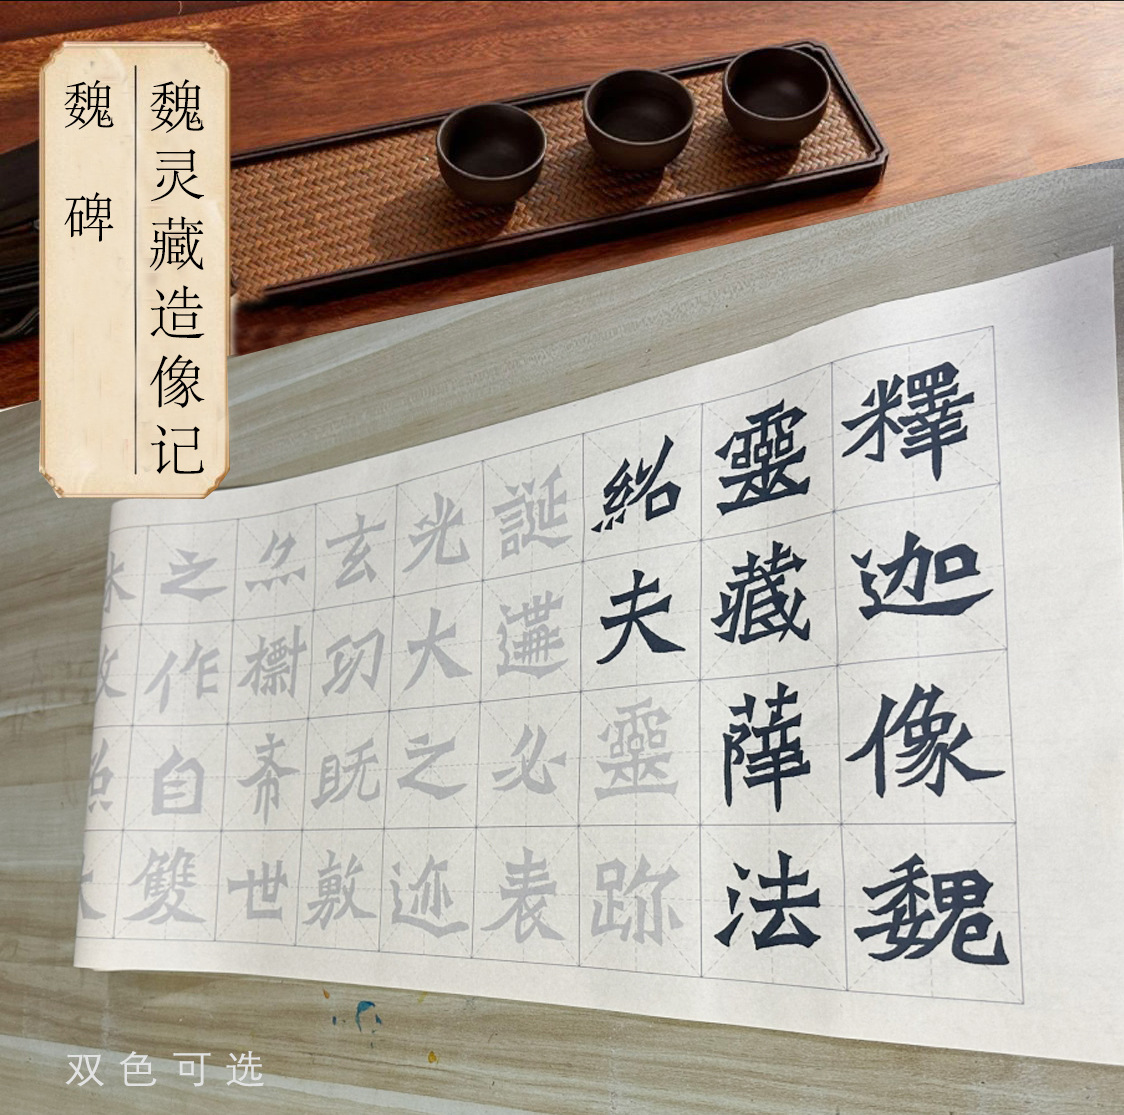 魏灵藏造像记
魏碑
釋迦像魏
靈藏薛法
紹夫靈跡
誕遘必表
光大之迹
玄功既敷
亦標希世
之作自雙
双色可选